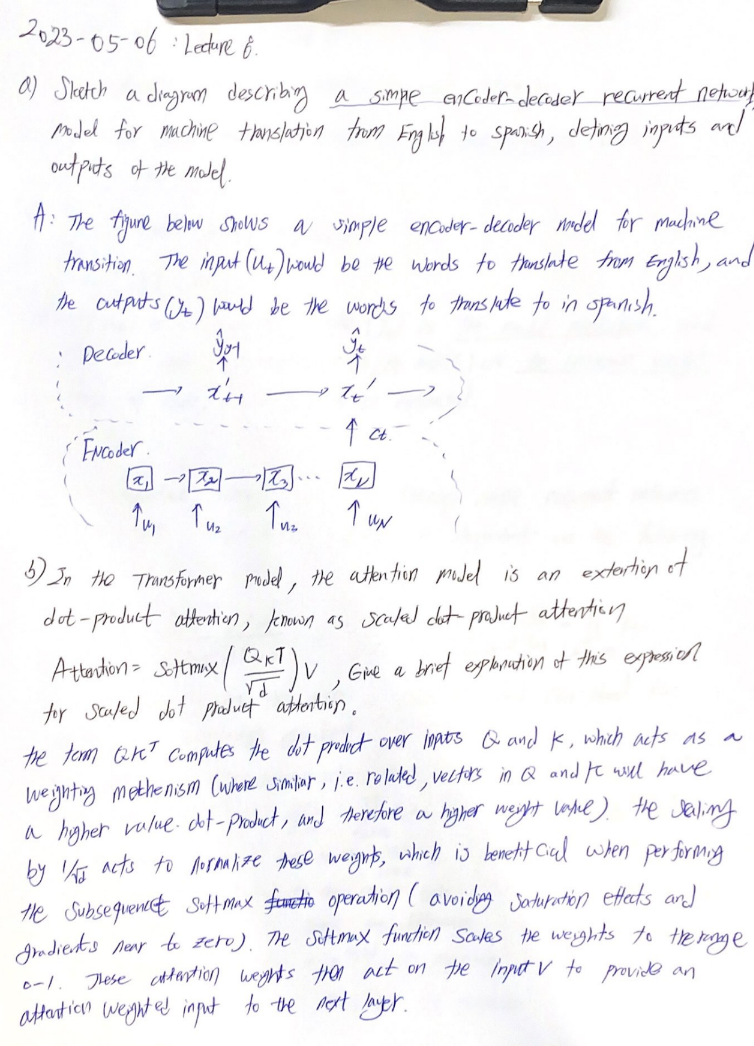 2023-05-06 : Lecture 8.
a) Sketch a diagram describing a simpe encoder-decoder recurrent network
model for machine translation from English to spanish, defining inputs and
outputs of the model.
A: The figure below shows a simple encoder-decoder model for machine
transition. The input (u_t) would be the words to translate from English, and
the outputs (y_t) would be the words to translate to in spanish.
Decoder. ŷ_t-1 ŷ_t
→ x'_t-1 → x_t' →
↑ c_t.
Encoder.
x_1 → x_2 → x_3 ... x_N
↑ u_1 ↑ u_2 ↑ u_2 ↑ u_N
b) In the Transformer model, the attention model is an extention of
dot-product attention, known as scaled dot-product attention
Attention = Softmax (QK^T / √d) V, Give a brief explanation of this expression
for scaled dot product attention.
the term QK^T computes the dot product over inputs Q and K, which acts as a
weighting methenism (where similiar, i.e. rolated, vectors in Q and K will have
a higher value. dot-product, and therefore a higher weight value). the scaling
by 1/√d acts to normalize these weights, which is beneficial when performing
the Subsequencet Softmax functio operation (avoiding saturation effects and
gradients near to zero). The softmax function scales the weights to the range
0-1. These attention weights then act on the input V to provide an
attention weighted input to the next layer.